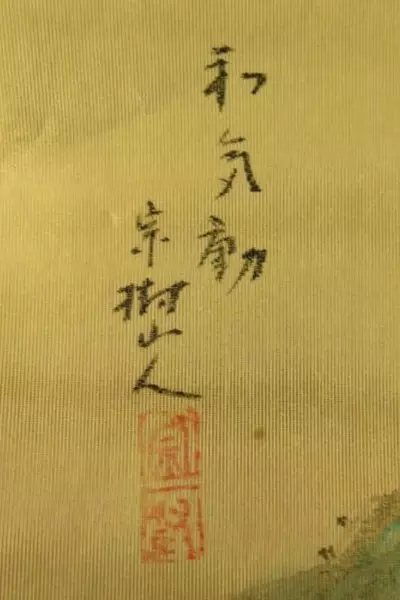 和気動
宗樹山人